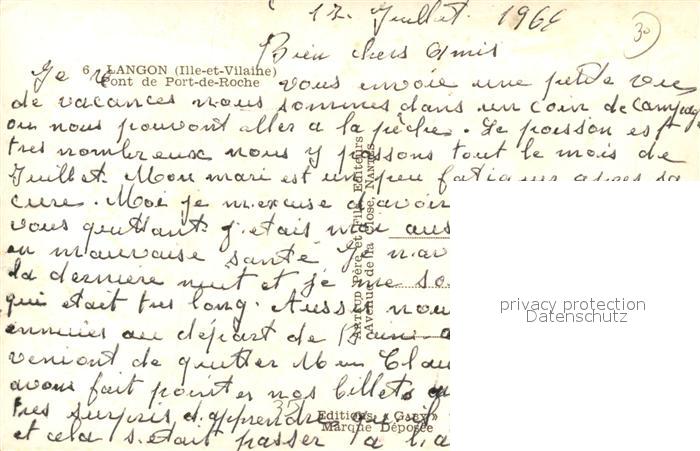 12 Juillet. 1966
30
Bien chers Amis
6. LANGON (Ille-et-Vilaine)
Pont de Port-de-Roche
Je vous envoie une petite vue
de vacances nous sommes dans un coin de campag
ou nous pouvont aller a la pêche. Le poisson est
tres nombreux nous y passons tout le mois de
Juillet. Mon mari est un peu fatiguer apres sa
cure. Moi je m'excuse d'avoir
vous quittant j'etais moi aus
en mauvaise santé Je n'av
la derniere nuit et je me so
qui etait tres long. Aussi nou
ennuies au départ de Bains
veniont de quitter Mme Clau
avons fait pointer nos billets
tres surpris d'apprendre
et cela s'etait passer a la
35
ARTAUD Père et Fils, Editeurs
Avenue de la Close, NANTES
Editions « GABY »
Marque Déposée
privacy protection
Datenschutz